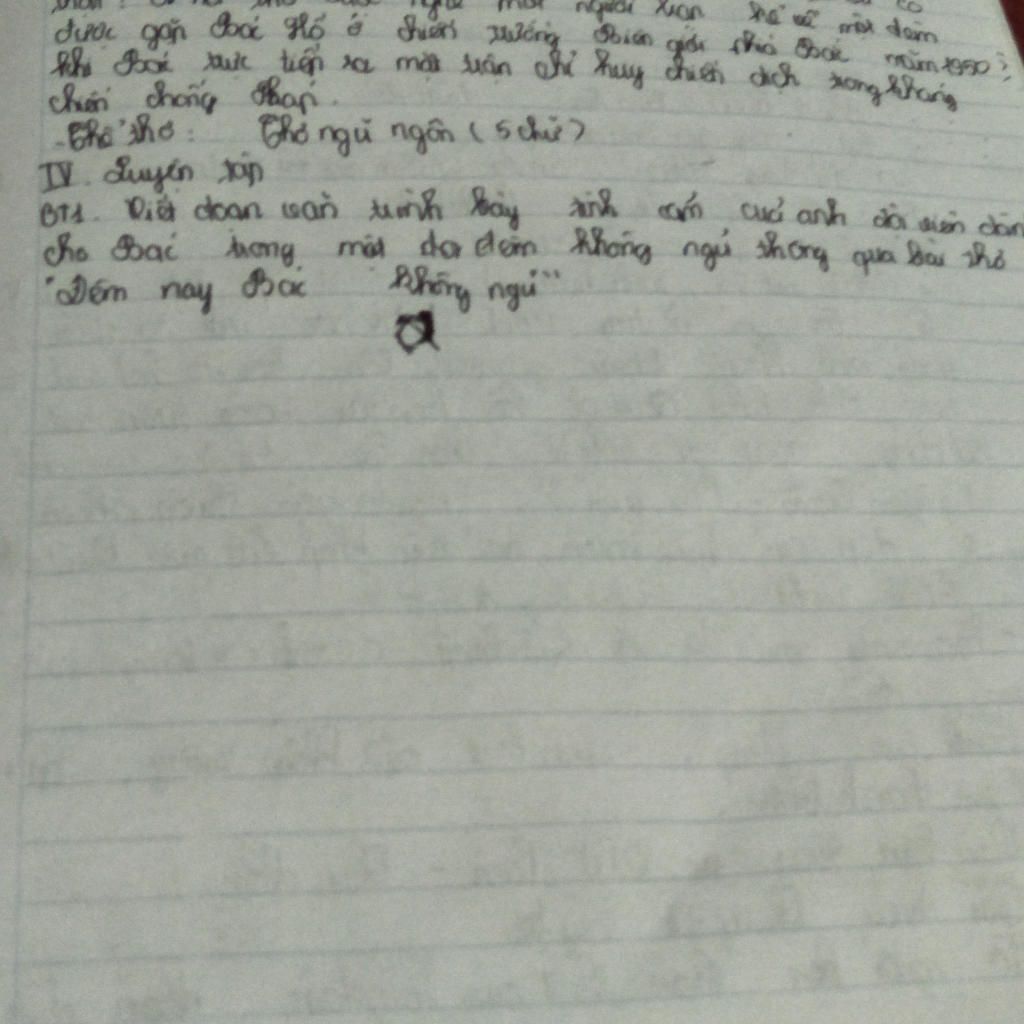 một người
được gặp Bác Hồ ở chiến trường Biên giới phía Bắc năm 1950
khi Bác trực tiếp ra mặt trận chỉ huy chiến dịch trong kháng
chiến chống Pháp.
- Thể thơ: Thơ ngũ ngôn (5 chữ)
IV. Luyện tập
BT1. Viết đoạn văn trình bày tình cảm cuả anh đội viên dân
cho Bác trong một đa đêm không ngủ thông qua bài thơ
"Đêm nay Bác không ngủ"